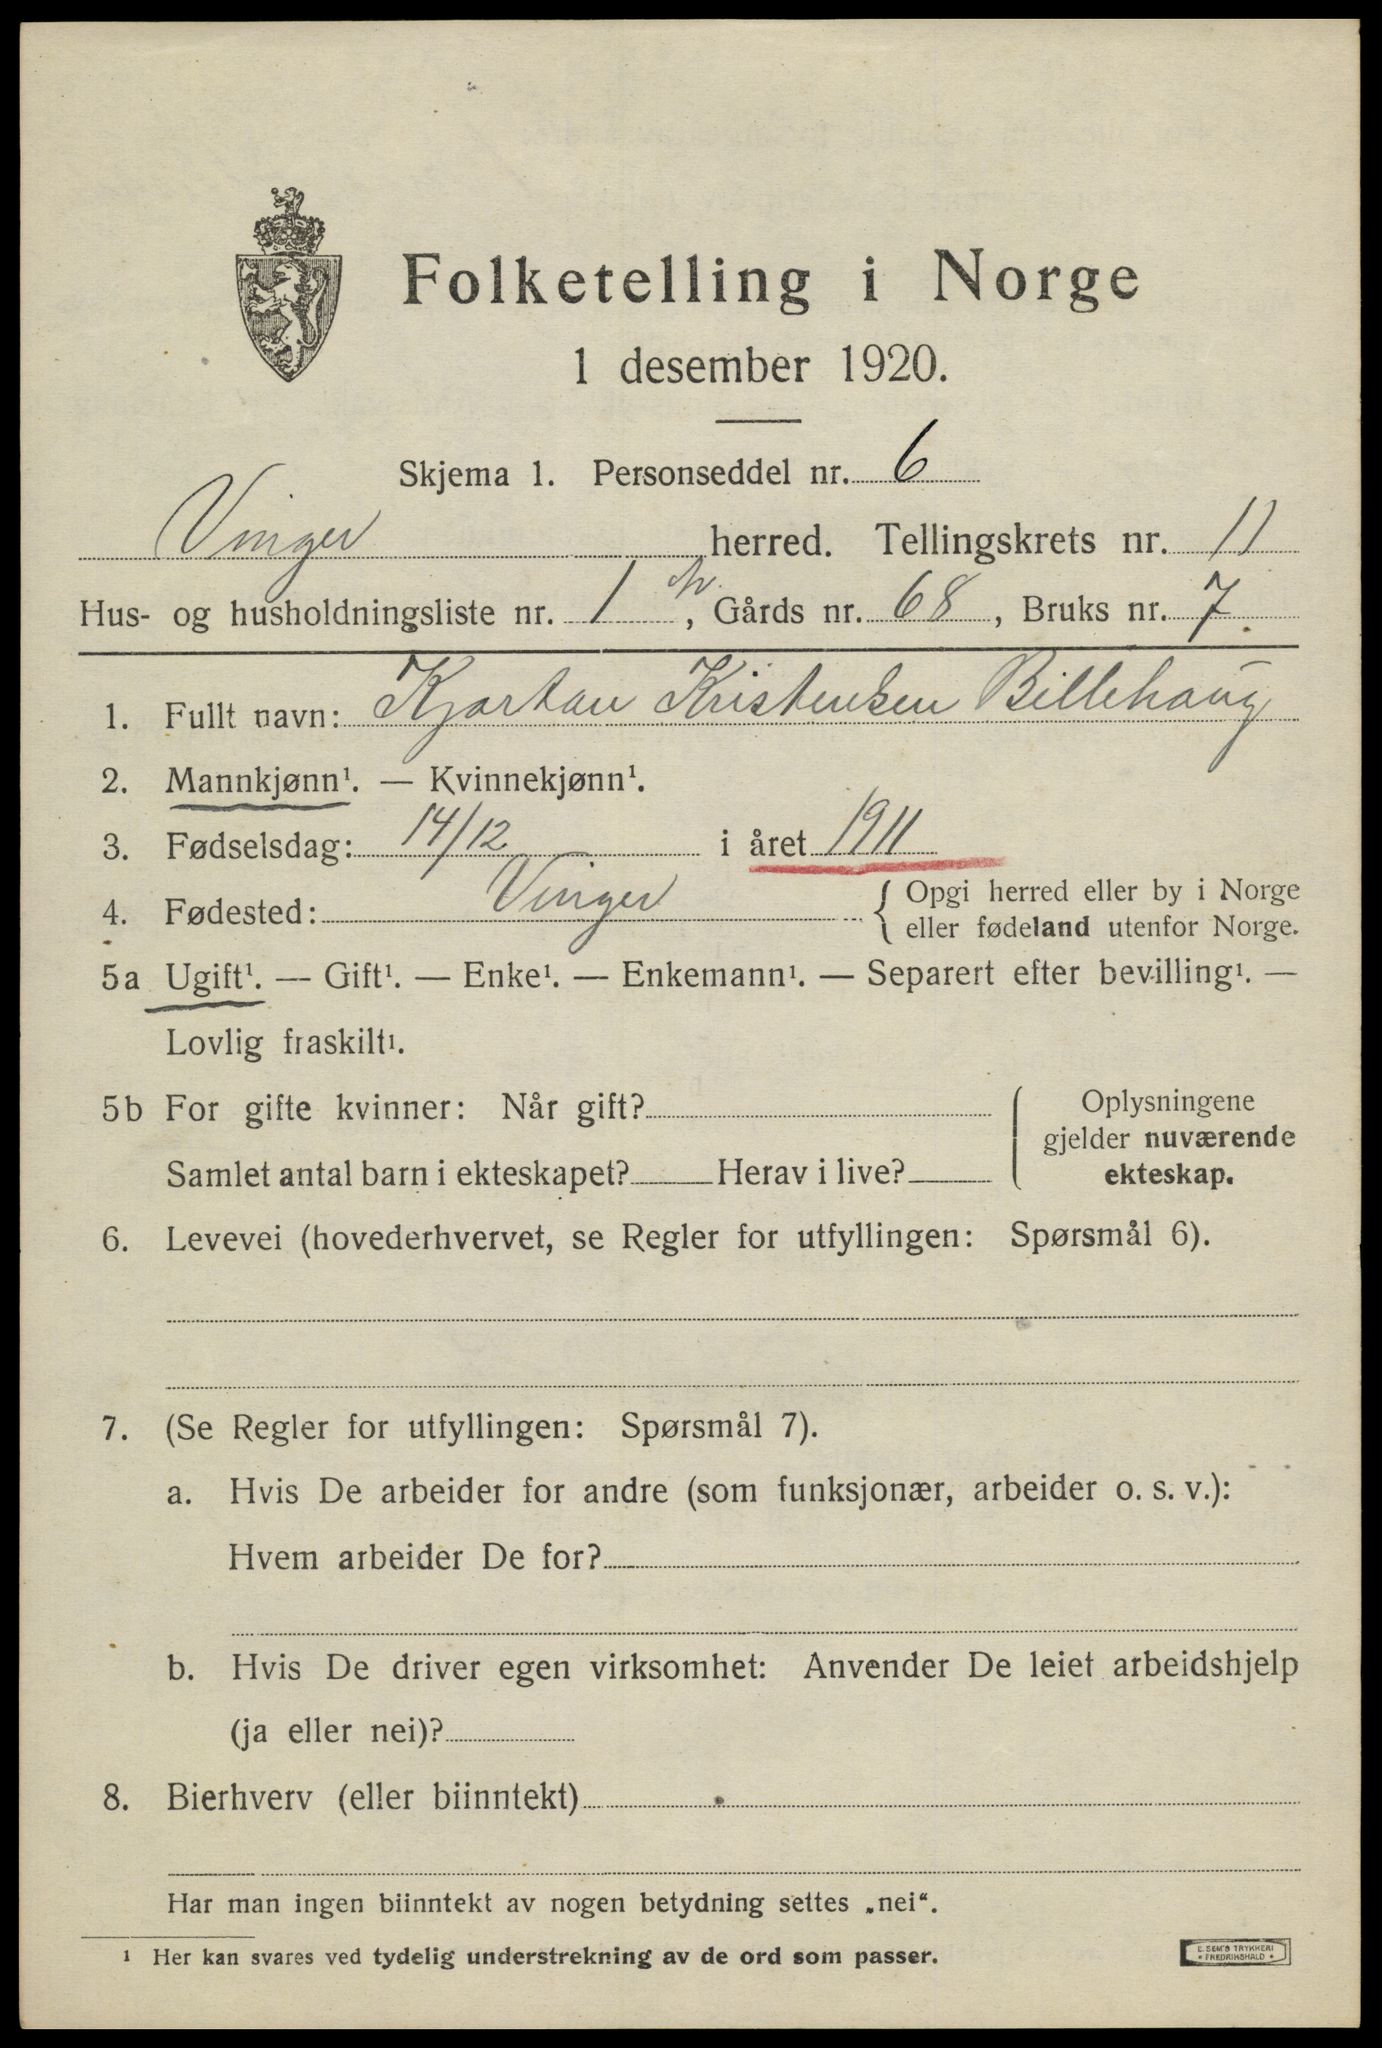 Folketelling i Norge
1 desember 1920.
Skjema 1. Personseddel nr. 6
Vinger herred. Tellingskrets nr. 11
Hus- og husholdningsliste nr. 1, Gårds nr. 68, Bruks nr. 7.
1. Fullt navn: Kjartan Kristensen Billehaug
2. Mannkjønn¹. — Kvinnekjønn¹.
3. Fødselsdag: 14/12 i året 1911
4. Fødested: Vinger { Opgi herred eller by i Norge
eller fødeland utenfor Norge.
5a Ugift¹. — Gift¹. — Enke¹. — Enkemann¹. — Separert efter bevilling¹. —
Lovlig fraskilt¹.
5b For gifte kvinner: Når gift?
Samlet antal barn i ekteskapet? Herav i live?
Oplysningene
gjelder nuværende
ekteskap.
6. Levevei (hovederhvervet, se Regler for utfyllingen: Spørsmål 6).
7. (Se Regler for utfyllingen: Spørsmål 7).
a. Hvis De arbeider for andre (som funksjonær, arbeider o. s. v.):
Hvem arbeider De for?
b. Hvis De driver egen virksomhet: Anvender De leiet arbeidshjelp
(ja eller nei)?
8. Bierhverv (eller biinntekt)
Har man ingen biinntekt av nogen betydning settes „nei“.
¹ Her kan svares ved tydelig understrekning av de ord som passer.
E. SEM'S TRYKKERI
• FREDRIKSHALD •